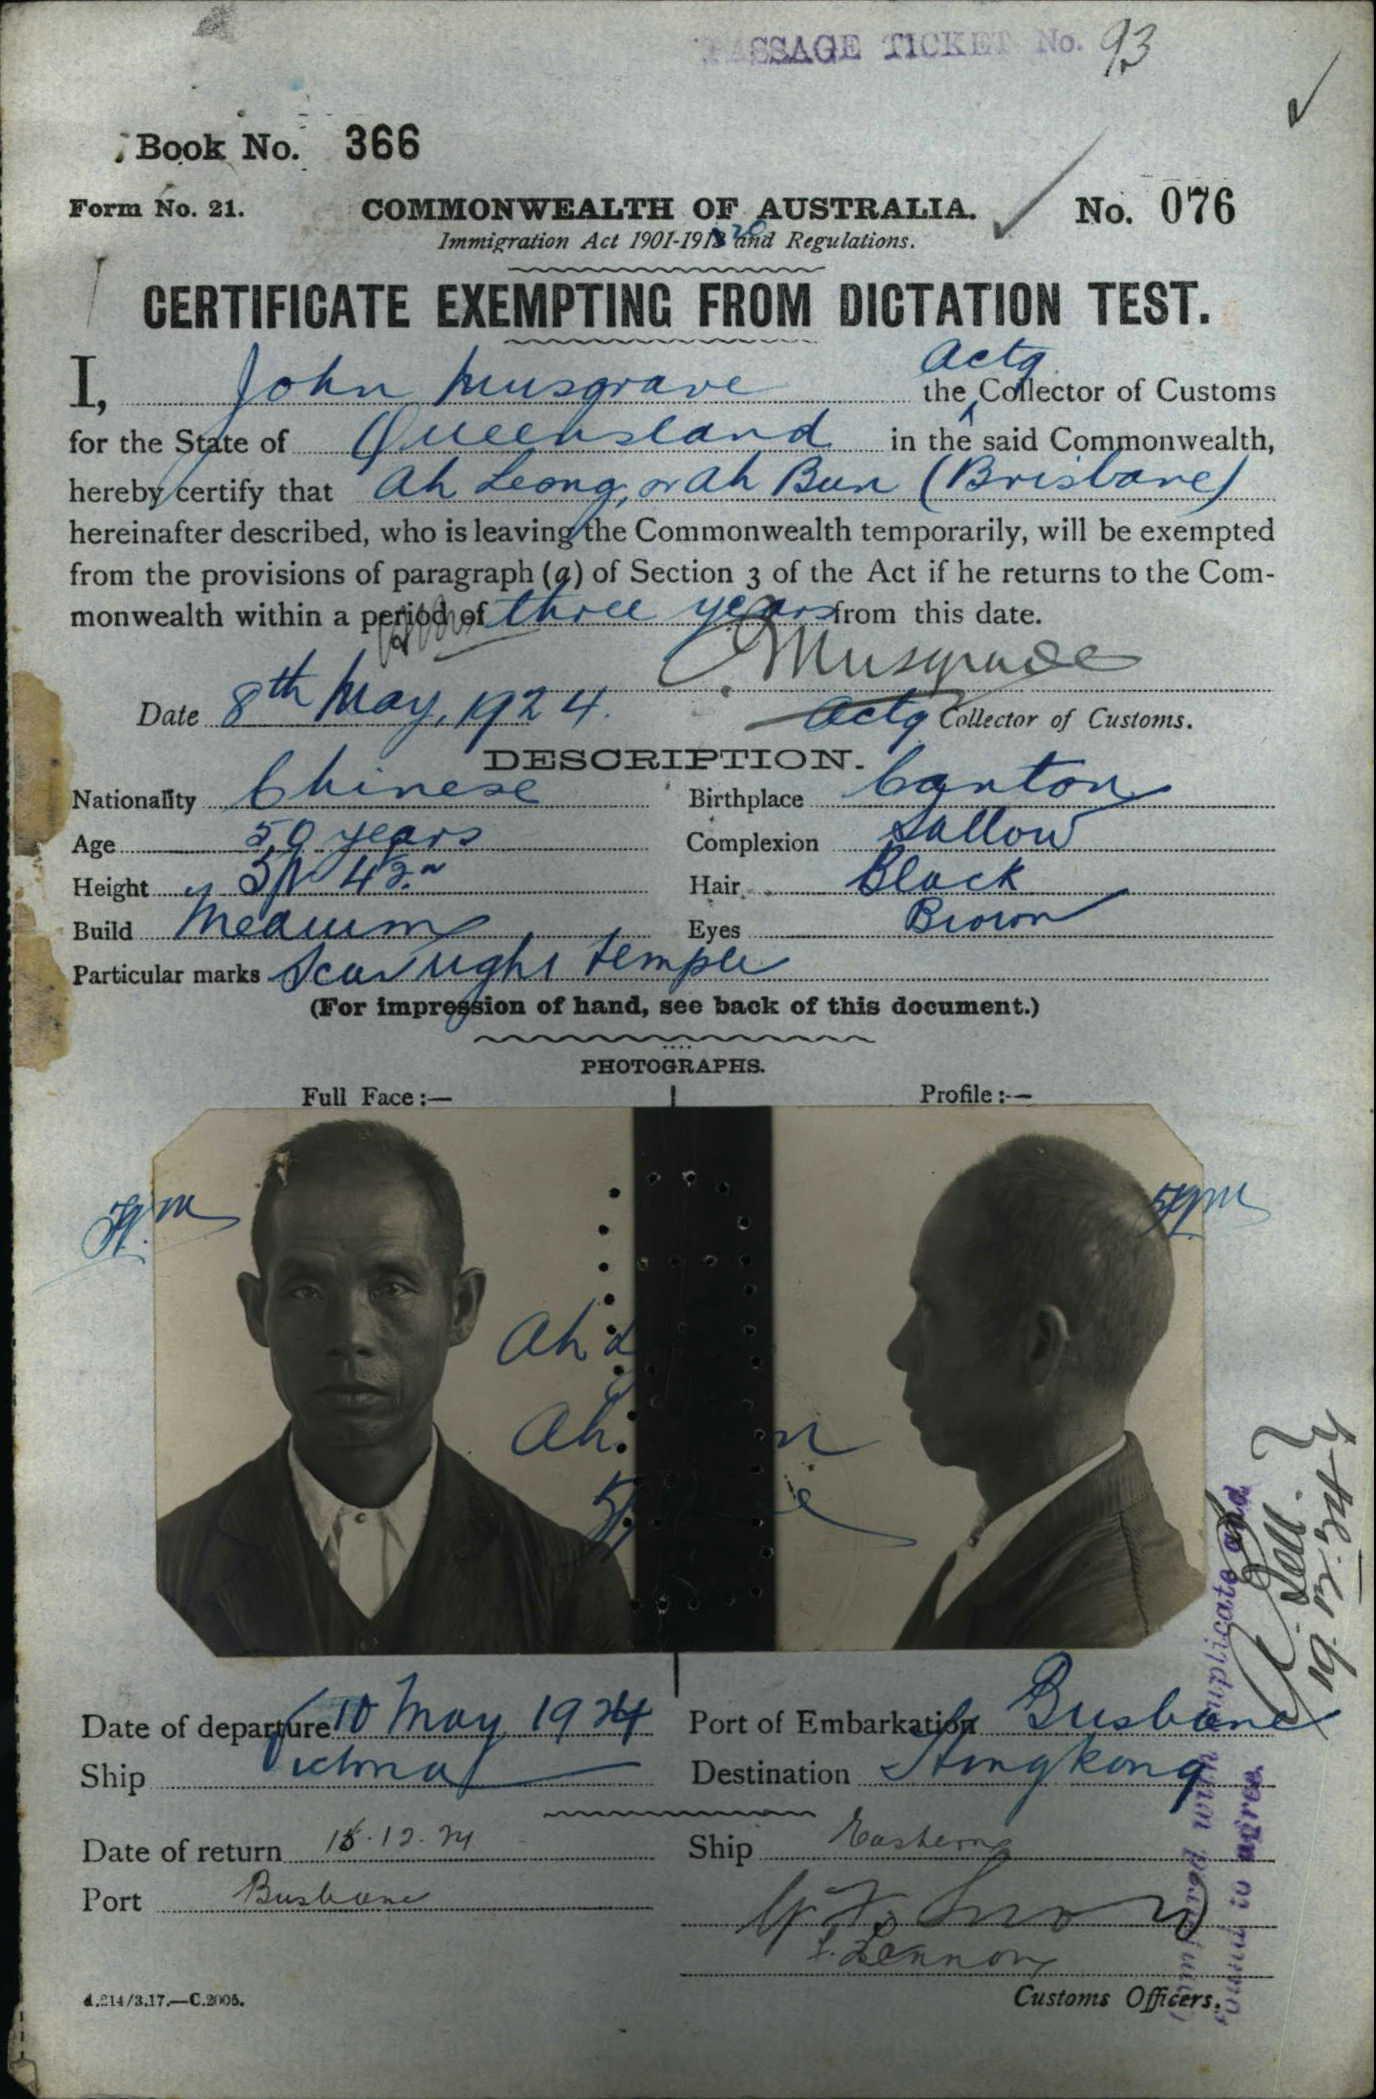 PASSAGE TICKET No. 93
Book No. 366
Form No. 21.
COMMONWEALTH OF AUSTRALIA.
No. 076
Immigration Act 1901-1920 and Regulations.
CERTIFICATE EXEMPTING FROM DICTATION TEST.
I, John Musgrave the Actg Collector of Customs
for the State of Queensland in the said Commonwealth,
hereby certify that Ah Leong, or Ah Bun (Brisbane)
hereinafter described, who is leaving the Commonwealth temporarily, will be exempted
from the provisions of paragraph (a) of Section 3 of the Act if he returns to the Com-
monwealth within a period of three years from this date.
Musgrave
Date 8th May, 1924.
Actg Collector of Customs.
DESCRIPTION.
Nationality Chinese
Birthplace Canton
Age 50 years
Complexion Sallow
Height 5ft
Hair Black
Build Medium
Eyes Brown
Particular marks Scar right temple
(For impression of hand, see back of this document.)
PHOTOGRAPHS.
Full Face:—
Profile:—
Ah
Ah. n
Date of departure 10 May 1924
Port of Embarkation Brisbane
Ship Victoria
Destination Hongkong
Date of return 15.12.24
Ship Eastern
Port Brisbane
Snow
Lennon
Customs Officers.
d.214/3.17.—C.2005.
Compared with duplicate and
found to agree.
19.12.24